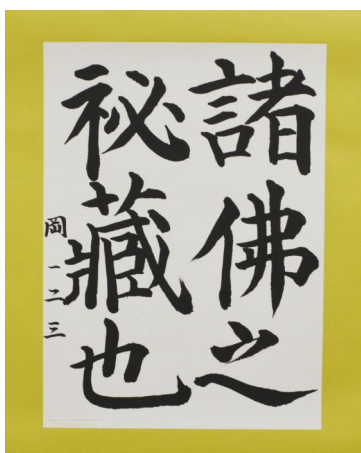 諸佛之
祕藏也
岡一二三